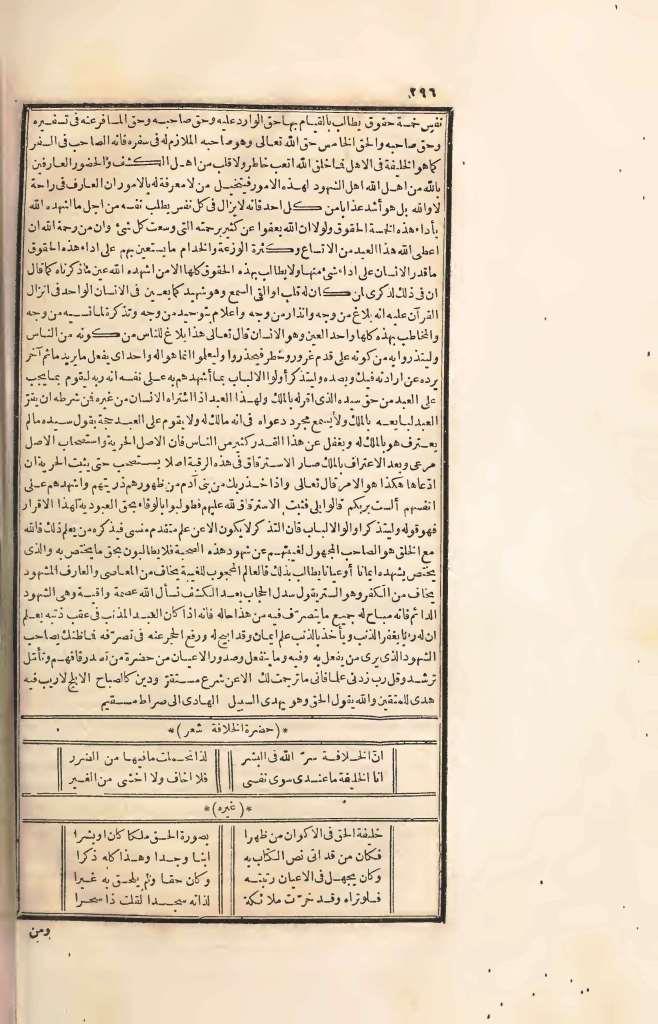 ٢٩٦
نفس خمسة حقوق يطالب بالقيام بها حق الوارد عليه وحق صاحبه وحق المسافر عنه في تسفيره
وحق صاحبه والحق الخامس حق الله تعالى وهو صاحبه الملازم له في سفره فانه الصاحب في السفر
كما هو الخليفة في الاهل فما خلق الله اتعب خاطر ولا قلب من اهل الكشف والحضور العارفين
بالله من اهل الله اهل الشهود لهذه الامور فيتخيل من لا معرفة له بالامور ان العارف في راحة
لا والله بل هو أشد عذابا من كل احد فانه لا يزال في كل نفس يطلب نفسه من اجل ما اشهده الله
بأداء هذه الخمسة الحقوق ولولا ان الله يعفوا عن كثير برحمته التي وسعت كل شئ وان من رحمة الله ان
اعطى الله هذا العبد من الاتساع وكثرة الوزعة والخدام ما يستعين بهم على اداء هذه الحقوق
ما قدر الانسان على اداء شئ منها ولا يطالب بهذه الحقوق كلها الا من اشهده الله عين ما ذكرناه كما قال
ان في ذلك لذكرى لمن كان له قلب او القى السمع وهو شهيد كما يعين في الانسان الواحد في انزال
القرآن عليه انه بلاغ من وجه وانذار من وجه واعلام بتوحيد من وجه وتذكرة لما نسيه من وجه
والمخاطب بهذه كلها واحد العين وهو الانسان قال تعالى هذا بلاغ للناس من كونه من الناس
ولينذروا به من كونه على قدم غرور وخطر فيحذروا وليعلموا انما هو اله واحد اي يفعل ما يريد ما ثم آخر
يرده عن ارادته فيك ويصده وليتذكر أولوا الالباب بما أشهدهم به على نفسه انه ربه ليقوم بما يجب
على العبد من حق سيده الذى اقر له بالملك ولهذا العبد اذا اشتراه الانسان من غيره فمن شرطه ان يقر
العبد لبايعه بالملك ولا يسمع مجرد دعواه فى انه مالك له ولا يقوم على العبد حجة بقول سيده ما لم
يعترف هو بالملك له ويغفل عن هذا القدر كثير من الناس فان الاصل الحرية واستصحاب الاصل
مرعى وبعد الاعتراف بالملك صار الاسترقاق في هذه الرقبة اصلا يستصحب حتى يثبت الحرية ان
ادعاها هكذا هو الامر قال تعالى واذ اخذ ربك من بنى آدم من ظهورهم ذريتهم واشهدهم على
انفسهم ألست بربكم قالوا بلى فثبت الاسترقاق لله عليهم فطولبوا بالوفاء بحق العبودية لهذا الاقرار
فهو قوله وليتذكر اولوا الالباب فان التذكر لا يكون الا عن علم متقدم منسى فيذكره من يعلم ذلك فالله
مع الخلق هو الصاحب المجهول لغيبتهم عن شهود هذه الصحبة فلا يطالبون بحق ما يختص به والذى
يختص بشهده ايمانا أو عيانا يطالب بذلك فالعالم المحجوب للغيبة يخاف من المعاصى والعارف المشهود
يخاف من الكفر وهو الستر يقول سدل الحجاب بعد الكشف نسأل الله عصمة واقية وهى الشهود
الدائم فانه مباح له جميع ما يتصرف فيه من هذا حاله فانه اذا كان العبد المذنب فى عقب ذنبه يعلم
ان له ربا يغفر الذنب ويأخذ بالذنب علم ايمان وقد ابيح له ورفع الحجر عنه فى تصرفه فما ظنك بصاحب
الشهود الذى يرى من يفعل به وفيه وما ينفعل وصدور الاعيان من حضرة من تصدر فافهم وتأمل
ترشد وقل رب زدنى علما فانى ما ترجمت لك الا عن شرع مستقر ودين كالصباح الابلج لا ريب فيه
هدى للمتقين والله يقول الحق وهو يهدى السبيل الهادى الى صراط مستقيم
*(حضرة الخلافة شعر)*
انّ الخلافة سرّ الله فى البشر لذا تحملت ما فيها من الضرر
انا الخليفة ما عندى سوى نفسى فلا اخاف ولا اخشى من الغير
*(غيره)*
خليفة الحق فى الاكوان من ظهرا بصورة الحق ملكا كان او بشرا
فكان من قد اتى نص الكتاب به ابنا وجدا وهذا كله ذكرا
وكان يجهل فى الاعيان رتبته وكان حقا ولم يلحق به غيرا
فلو تراه وقد خرّت ملائكة لذاته سجدا لقلت ذا سحرا
ومن